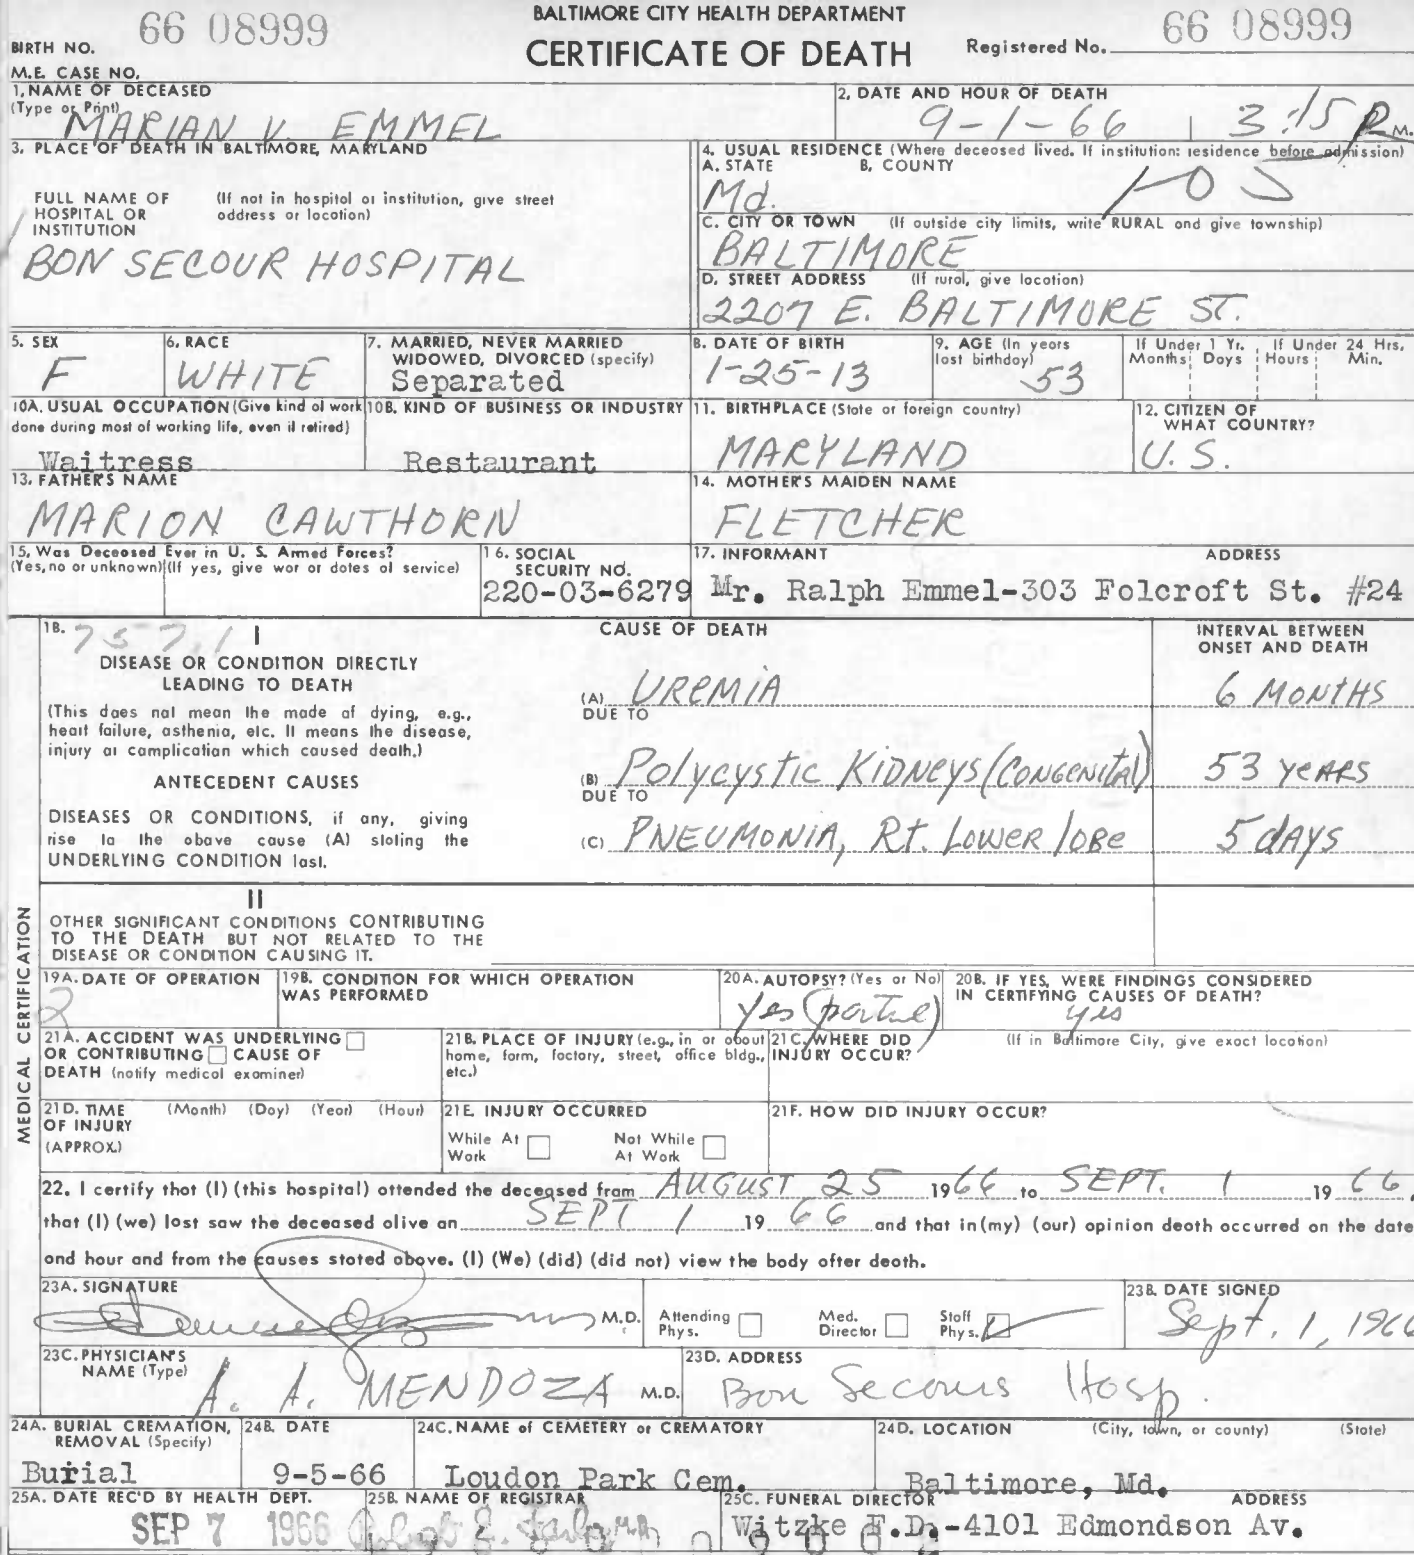 66 08999
BALTIMORE CITY HEALTH DEPARTMENT
66 08999
BIRTH NO.
CERTIFICATE OF DEATH
Registered No.
M.E. CASE NO.
1. NAME OF DECEASED
(Type or Print)
MARIAN V. EMMEL
2. DATE AND HOUR OF DEATH
9-1-66 3:15 P M.
3. PLACE OF DEATH IN BALTIMORE, MARYLAND
FULL NAME OF HOSPITAL OR INSTITUTION
(If not in hospital or institution, give street address or location)
BON SECOUR HOSPITAL
4. USUAL RESIDENCE (Where deceased lived. If institution: residence before admission)
A. STATE B. COUNTY
Md.
C. CITY OR TOWN (If outside city limits, write RURAL and give township)
BALTIMORE
D. STREET ADDRESS (If rural, give location)
2207 E. BALTIMORE ST.
5. SEX
F
6. RACE
WHITE
7. MARRIED, NEVER MARRIED
WIDOWED, DIVORCED (specify)
Separated
8. DATE OF BIRTH
1-25-13
9. AGE (In years
last birthday)
53
If Under 1 Yr.
Months Days
If Under 24 Hrs.
Hours Min.
10A. USUAL OCCUPATION (Give kind of work
done during most of working life, even if retired)
Waitress
10B. KIND OF BUSINESS OR INDUSTRY
Restaurant
11. BIRTHPLACE (State or foreign country)
MARYLAND
12. CITIZEN OF
WHAT COUNTRY?
U.S.
13. FATHER'S NAME
MARION CAWTHORN
14. MOTHER'S MAIDEN NAME
FLETCHER
15. Was Deceased Ever in U. S. Armed Forces?
(Yes, no or unknown) (If yes, give war or dates of service)
16. SOCIAL
SECURITY NO.
220-03-6279
17. INFORMANT ADDRESS
Mr. Ralph Emmel-303 Folcroft St. #24
MEDICAL CERTIFICATION
18. 757.1 I
DISEASE OR CONDITION DIRECTLY
LEADING TO DEATH
(This does not mean the mode of dying, e.g.,
heart failure, asthenia, etc. It means the disease,
injury or complication which caused death.)
ANTECEDENT CAUSES
DISEASES OR CONDITIONS, if any, giving
rise to the above cause (A) stating the
UNDERLYING CONDITION last.
CAUSE OF DEATH
INTERVAL BETWEEN
ONSET AND DEATH
(A) UREMIA 6 MONTHS
DUE TO
(B) Polycystic KIDNEYS (CONGENITAL) 53 YEARS
DUE TO
(C) PNEUMONIA, Rt. LOWER lOBE 5 dAYS
II
OTHER SIGNIFICANT CONDITIONS CONTRIBUTING
TO THE DEATH BUT NOT RELATED TO THE
DISEASE OR CONDITION CAUSING IT.
19A. DATE OF OPERATION
2
19B. CONDITION FOR WHICH OPERATION
WAS PERFORMED
20A. AUTOPSY? (Yes or No)
Yes (partial)
20B. IF YES, WERE FINDINGS CONSIDERED
IN CERTIFYING CAUSES OF DEATH?
yes
21A. ACCIDENT WAS UNDERLYING
OR CONTRIBUTING CAUSE OF
DEATH (notify medical examiner)
21B. PLACE OF INJURY (e.g., in or about
home, farm, factory, street, office bldg.,
etc.)
21C. WHERE DID
INJURY OCCUR?
(If in Baltimore City, give exact location)
21D. TIME (Month) (Day) (Year) (Hour)
OF INJURY
(APPROX.)
21E. INJURY OCCURRED
While At Work Not While At Work
21F. HOW DID INJURY OCCUR?
22. I certify that (I) (this hospital) attended the deceased from AUGUST 25 1966 to SEPT. 1 1966,
that (I) (we) last saw the deceased alive on SEPT 1 1966 and that in (my) (our) opinion death occurred on the date
and hour and from the causes stated above. (I) (We) (did) (did not) view the body after death.
23A. SIGNATURE
M.D.
Attending Phys. Med. Director Staff Phys.
23B. DATE SIGNED
Sept. 1, 1966
23C. PHYSICIAN'S
NAME (Type)
A. A. MENDOZA M.D.
23D. ADDRESS
Bon Secours Hosp.
24A. BURIAL CREMATION,
REMOVAL (Specify)
Burial
24B. DATE
9-5-66
24C. NAME of CEMETERY or CREMATORY
Loudon Park Cem.
24D. LOCATION (City, town, or county) (State)
Baltimore, Md.
25A. DATE REC'D BY HEALTH DEPT.
SEP 7 1966
25B. NAME OF REGISTRAR
25C. FUNERAL DIRECTOR ADDRESS
Witzke F.D.-4101 Edmondson Av.